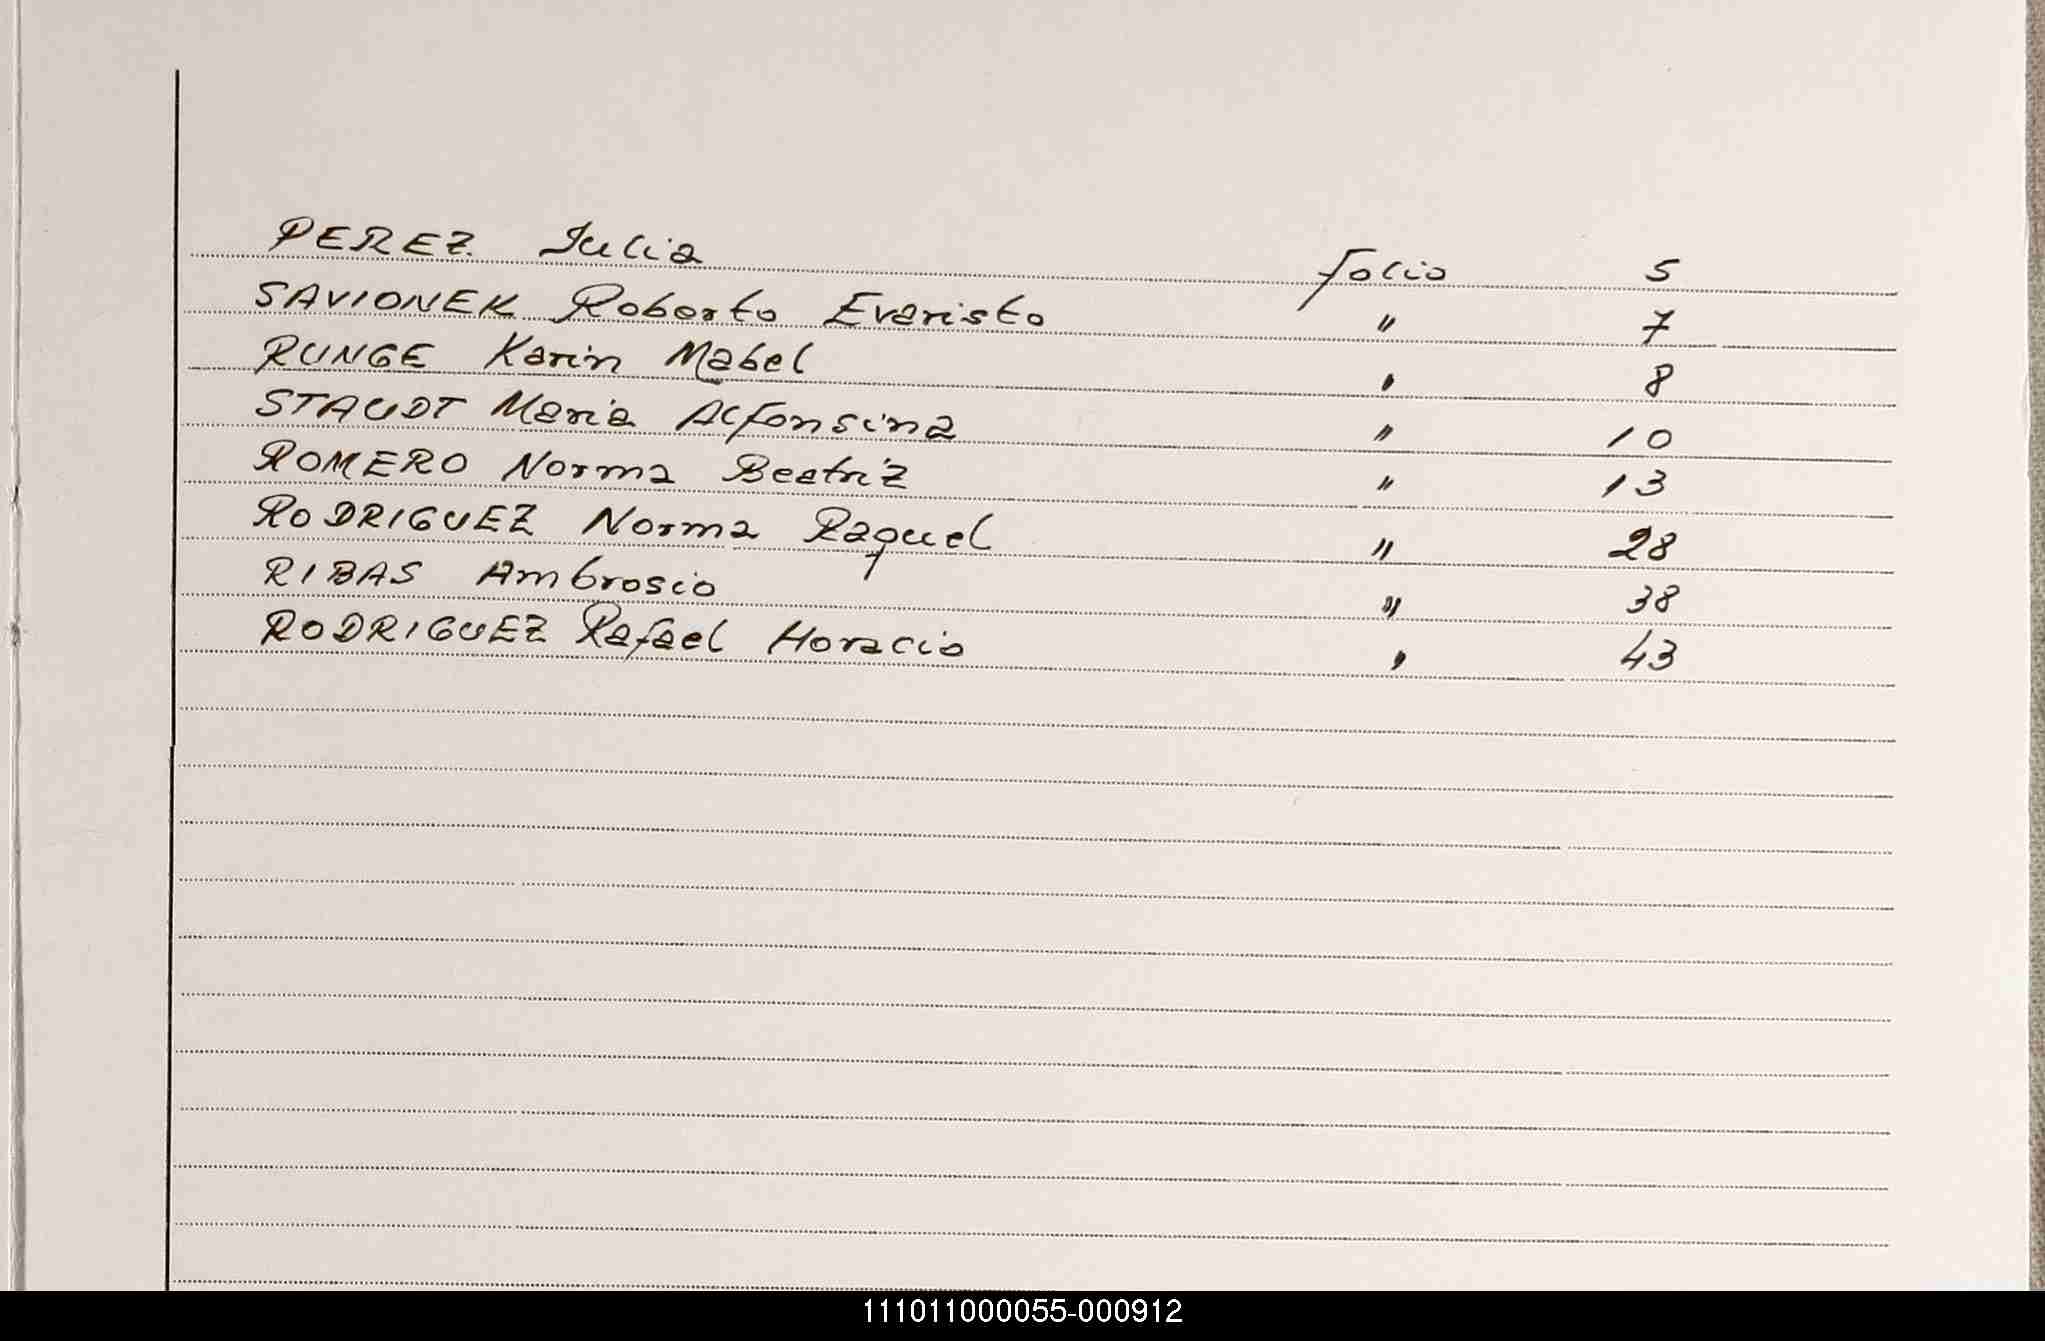 PEREZ Julia folio 5
SAVIONEK Roberto Evaristo " 7
RUNGE Karin Mabel " 8
STAUDT Maria Alfonsina " 10
ROMERO Norma Beatriz " 13
RODRIGUEZ Norma Raquel " 28
RIBAS Ambrosio " 38
RODRIGUEZ Rafael Horacio " 43
111011000055-000912